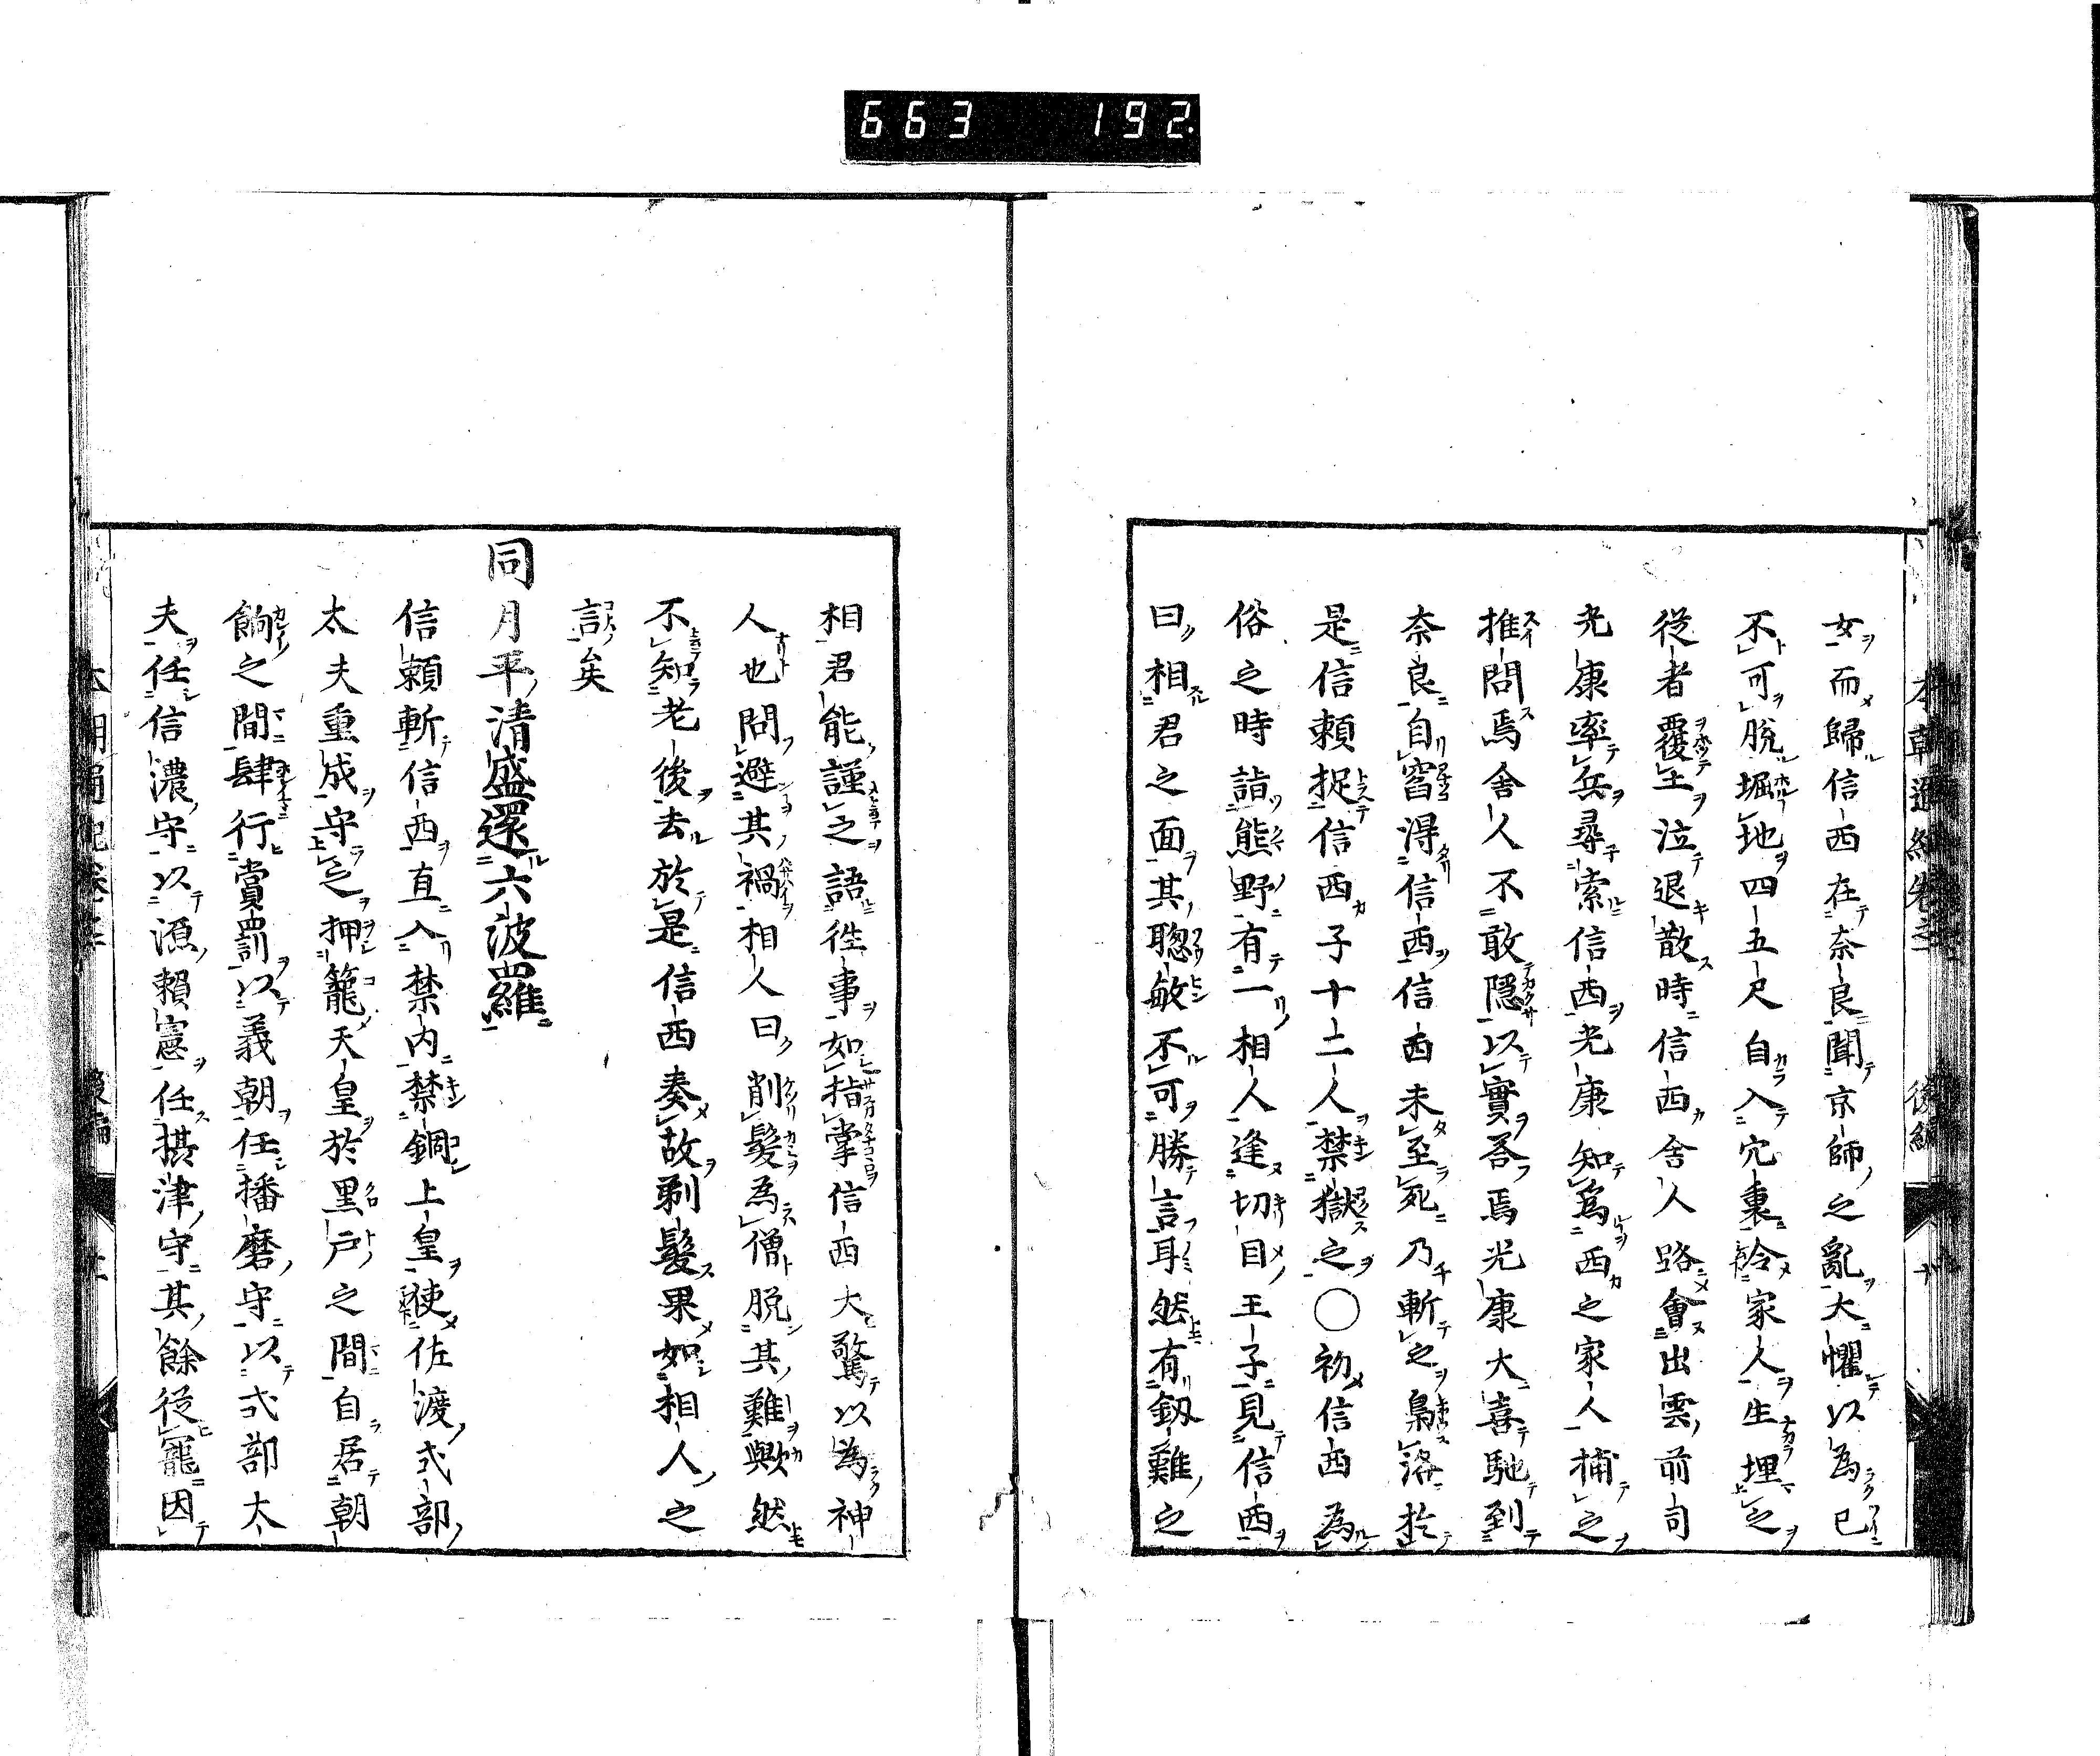 663 192
女而歸信西在奈良聞京師之亂大懼以為已
不可脫堀地四五尺自入穴裏令家人生埋之
從者覆土泣退散時信西舍人路會出雲前司
光康率兵尋索信西光康知為西之家人捕之
推問焉舍人不敢隱以實答焉光康大喜馳到
奈良自窖得信西信西未至死乃斬之梟落於
是信賴捉信西子十二人禁獄之〇初信西為
俗之時詣熊野有一相人逢切目王子見信西
曰相君之面其聰敏不可勝言耳然有釼難之
相君能謹之語徃事如指掌信西大驚以為神
人也問避其禍相人曰削髮為僧脫其難歟然
不知老後去於是信西奏故剃髮果如相人之
言矣
同月平清盛還六波羅
信賴斬信西直入禁內禁錮上皇使佐渡式部
太夫重成守之押籠天皇於黑戶之間自居朝
餉之間肆行賞罰以義朝任播磨守以式部太
夫任信濃守以源賴憲任攝津守其餘從寵因